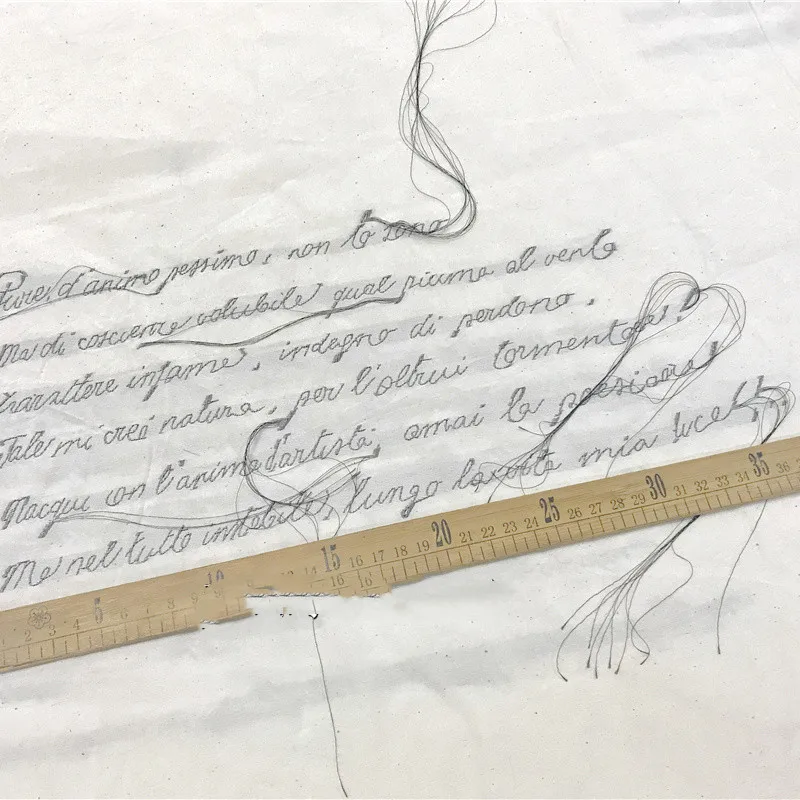 Pure, d'animo pessimo, non lo sono
Ma di coscienza volubile qual piuma al vento
Carattere infame, indegno di perdono.
Tale mi creò natura, per l'altrui tormento!
Nacqui con l'animo d'artista, amai la poesia
Ma nel tutto instabile, lungo la mia luce
5 10 15 16 17 18 19 20 21 22 23 24 25 26 27 28 29 30 31 32 33 34 35 36
2 3 5 6 7 8 9 16